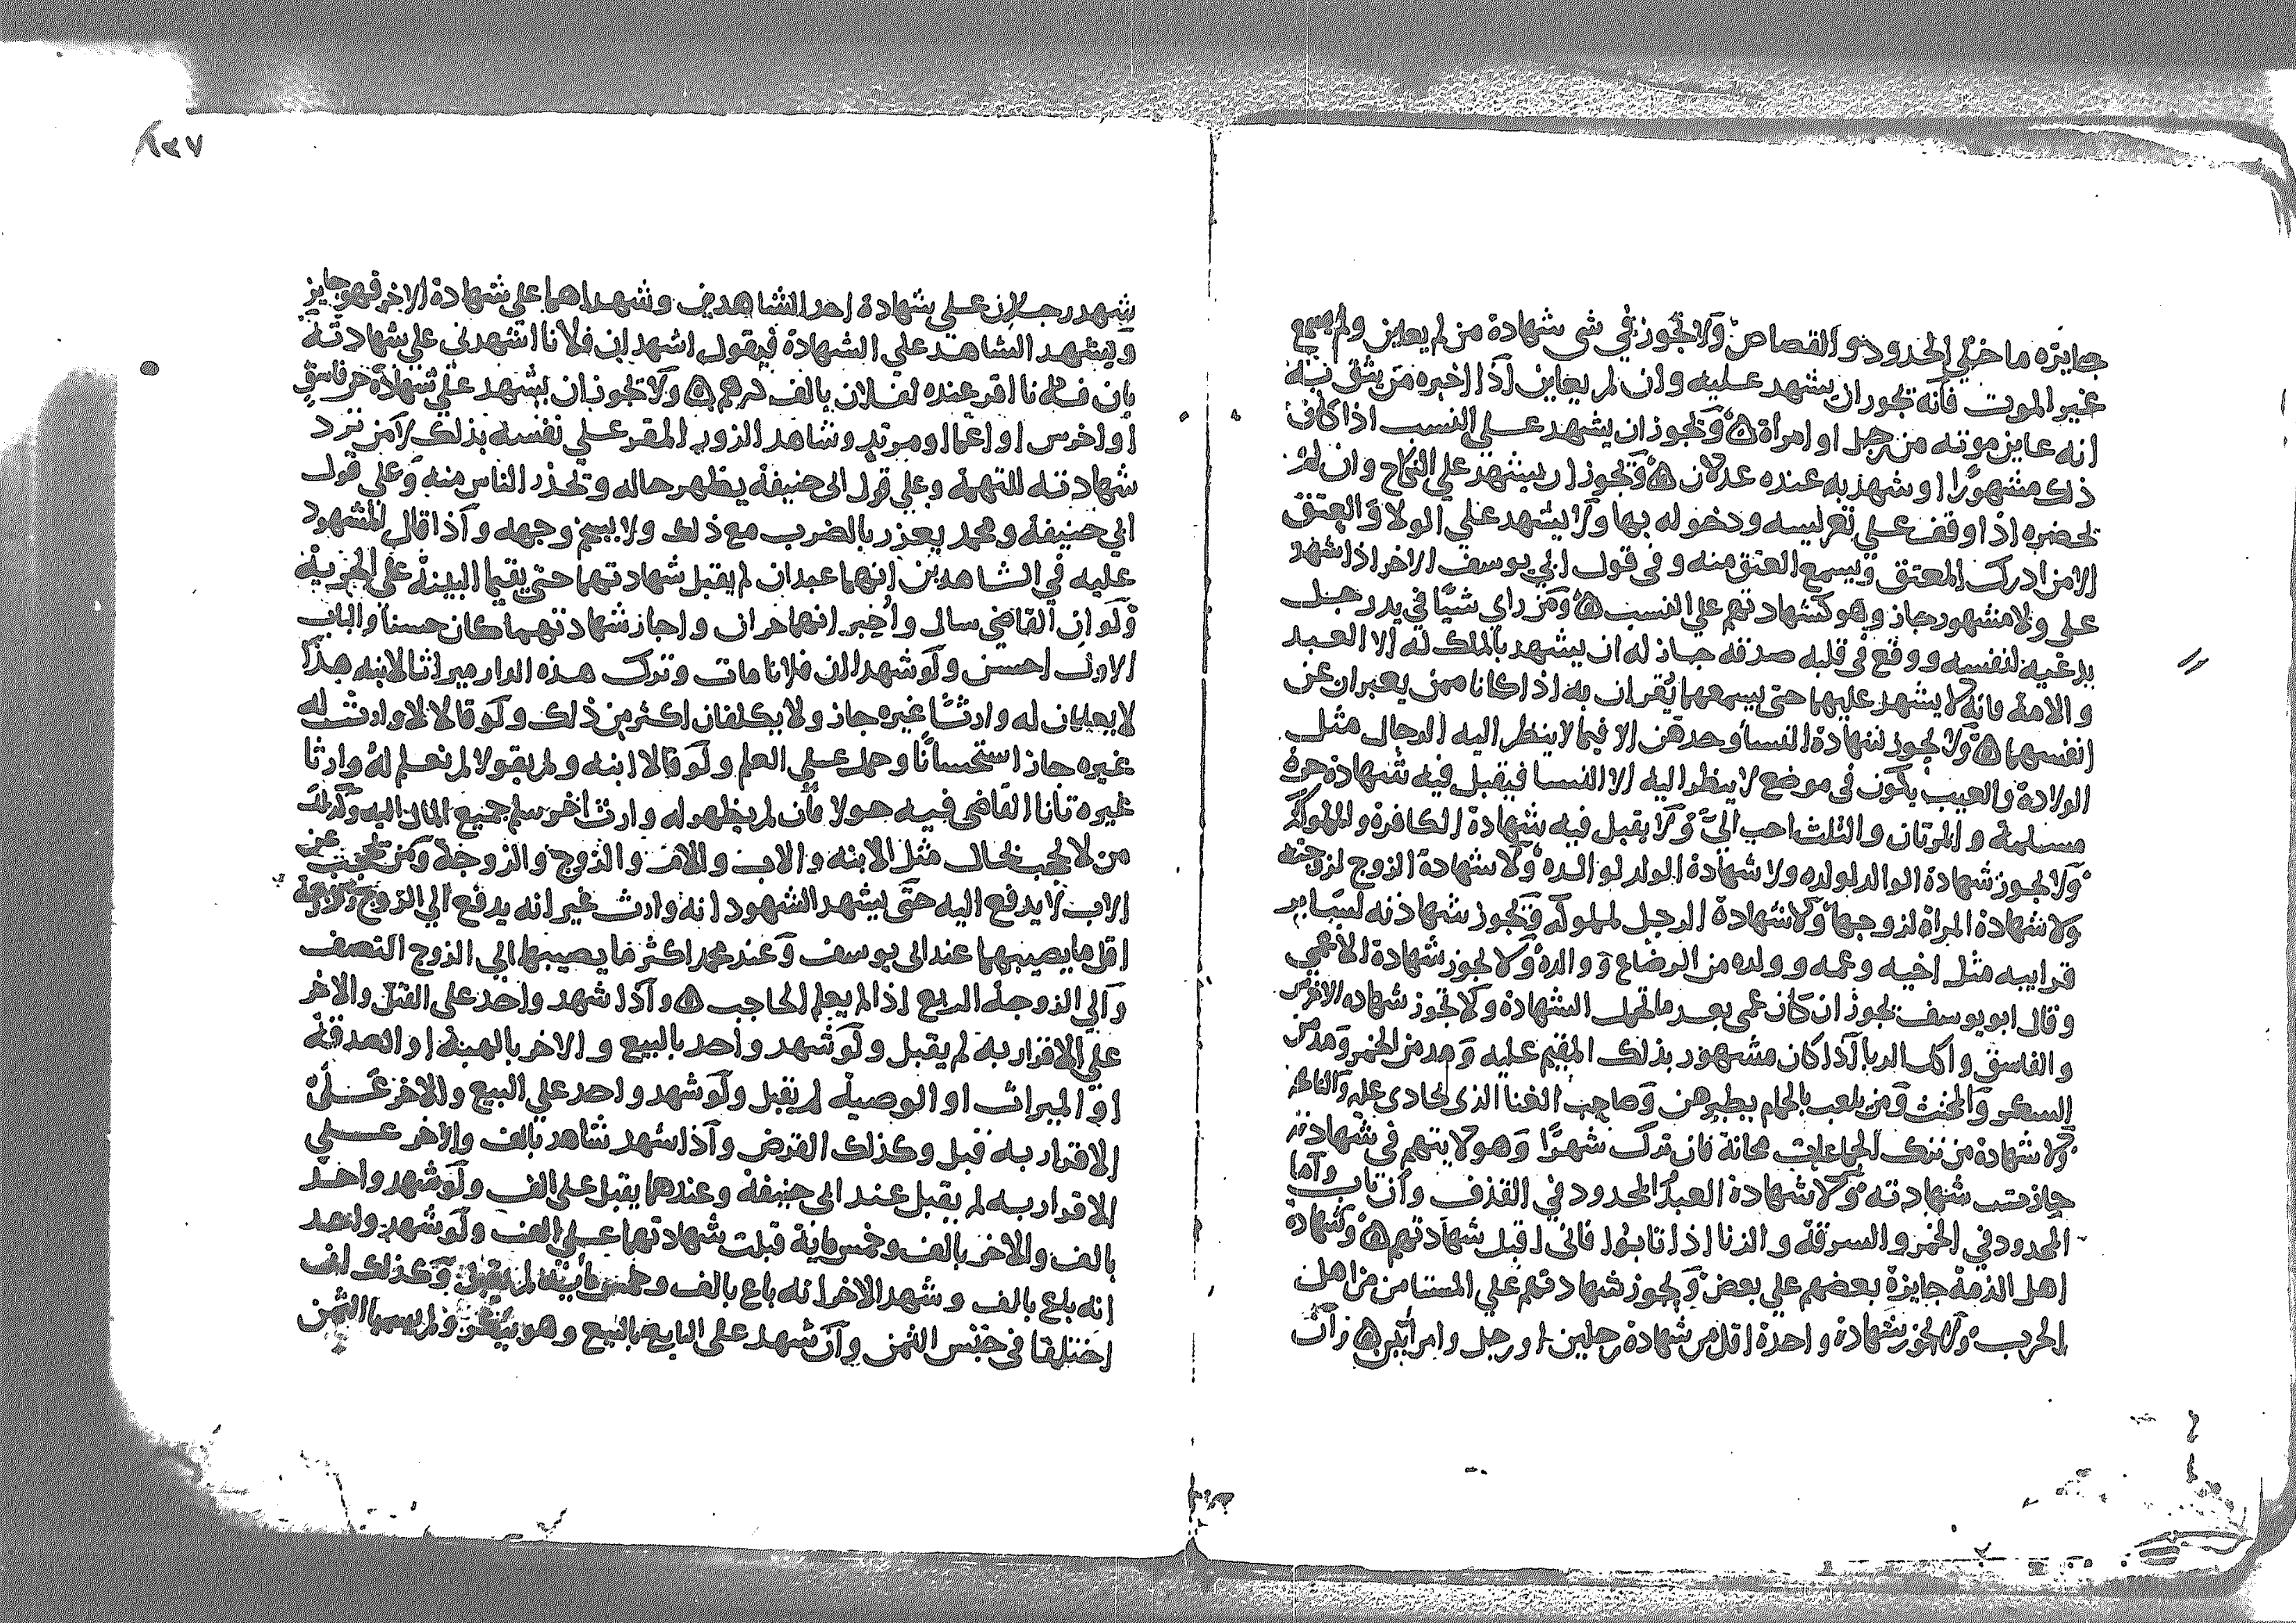 جايزه ما خلي الحدود والقصاص ولا تجوز في شي شهادة من لم يعاين ولم يسمع
غير الموت فانه تجوز ان يشهد عليه وان لم يعاين اذا اخبره من يثق به
انه عاين موته من رجل او امراة ٥ وتجوز ان يشهد على النسب اذا كان
ذلك مشهورا او شهد به عنده عدلان ٥ وتجوز ان يشهد على النكاح وان لم
تحضره اذا وقف على تعريسه ودخوله بها ولا يشهد على الولا والعتق
الا من ادرك المعتق ويسمع العتق منه وفى قول ابي يوسف الاخر اذا شهد
على ولا مشهور جاز وهو كشهادتهم على النسب ٥ ومن راي شيا في يد رجل
يدعيه لنفسه ووقع في قلبه صدقه جاز له ان يشهد بالملك له الا العبد
والامة فانه لا يشهد عليهما حتى يسمعهما يقران به اذا كانا ممن يعبران عن
انفسهما ٥ ولا يجوز شهادة النسا وحدهن الا فيما لا ينظر اليه الرجال مثل
الولادة والعيب يكون فى موضع لا ينظر اليه الا النسا فيقبل فيه شهادة حرة
مسلمة والمرتان والثلث احب الي ولا يقبل فيه شهادة الكافرة والمملوكة
ولا يجوز شهادة الوالد لولده ولا شهادة الولد لوالده ولا شهادة الزوج لزوجته
ولا شهادة المراة لزوجها ولا شهادة الرجل لمملوكه وتجوز شهادته لساير
قرابيه مثل اخيه وعمه وولده من الرضاع ووالده ولا يجوز شهادة الاعمي
وقال ابو يوسف يجوز ان كان عمي بعد ما تحمل الشهادة ولا تجوز شهاده الاخرس
والفاسق واكل الربا اذا كان مشهور بذلك المقيم عليه ومدمن الخمر ومدمن
السكر والمخنث ومن يلعب بالحمام يطيرهن وصاحب الغنا الذى يخادن عليه والنائحه
ولا شهادة من ترك الجماعات مجانة فان ترك شهرا وهو لا يتهم في شهادته
جازت شهادته ولا شهادة العبد المحدود في القذف وان تاب واما
المحدود في الخمر والسرقة والزنا اذا تابوا فانى اقبل شهادتهم ٥ وشهادة
اهل الذمة جايزة بعضهم علي بعض ويجوز شهادتهم علي المستامن من اهل
الحرب ولا يجوز شهادة واحدة اقل من شهادة رجلين او رجل وامراتين ٥ وان
٨٣٧
شهد رجلان على شهادة احد الشاهدين وشهد اهما على شهادة الاخر فهو جايز
ويشهد الشاهد على الشهادة فيقول اشهد ان فلانا اشهدنى على شهادته
بان فلانا اقر عنده لفلان بالف درهم ٥ ولا يجوز ان يشهد على شهادة فاسق
او اخرس او اعما او مرتد وشاهد الزور المقر على نفسه بذلك لا من ترد
شهادته للتهمة وعلي قول ابى حنيفة يظهر حاله وتحذر الناس منه وعلي قول
ابي حنيفة ومحمد يعزر بالضرب مع ذلك ولا يسحم وجهه واذا قال المشهود
عليه في الشاهدين انهما عبدان لم يقبل شهادتهما حتى يقيما البينة على الحرية
ولو ان القاضى سال واخبر انهما حران واجاز شهادتهما كان حسنا والباب
الاول احسن ولو شهدا ان فلانا مات وترك هذه الدار ميراثا لابنه هذا
لا يعلمان له وارثا غيره جاز ولا يكلفان اكثر من ذلك ولو قالا لا وارث له
غيره جاز استحسانا وحمل علي العلم ولو قالا ابنه ولم يقولا لم نعلم له وارثا
غيره تأنا القاضى فيه حولا فان لم يظهر له وارث اخر سلم جميع المال اليه وكذلك
من لا يحجب بحال مثل الابنه والاب والام والزوج والزوجة ومن يحجب عن
الاب لا يدفع اليه حتى يشهد الشهود انه وارث غير انه يدفع الي الزوج والزوجة
اقل ما يصيبهما عند ابى يوسف وعند محمد اكثر ما يصيبهما الي الزوج النصف
والي الزوجة الربع اذا لم يعلم الحاجب ٥ واذا شهد واحد على القتل والاخر
علي الاقرار به لم يقبل ولو شهد واحد بالبيع والاخر بالهبة او الصدقة
او الميراث او الوصية لم يقبل ولو شهد واحد علي البيع والاخر على
الاقرار به قبل وكذلك القرض واذا شهد شاهد بالف والاخر علي
الاقرار به لم يقبل عند ابى حنيفة وعندهما يقبل على الف ولو شهد واحد
بالف والاخر بالف وخمس ماية قبلت شهادتهما على الف ولو شهد واحد
انه باع بالف وشهد الاخر انه باع بالف وخمس ماية لم يقبل وكذلك لو
اختلفا فى جنس الثمن وان شهد على البايع بالبيع وهو ينكر ولم يسميا الثمن